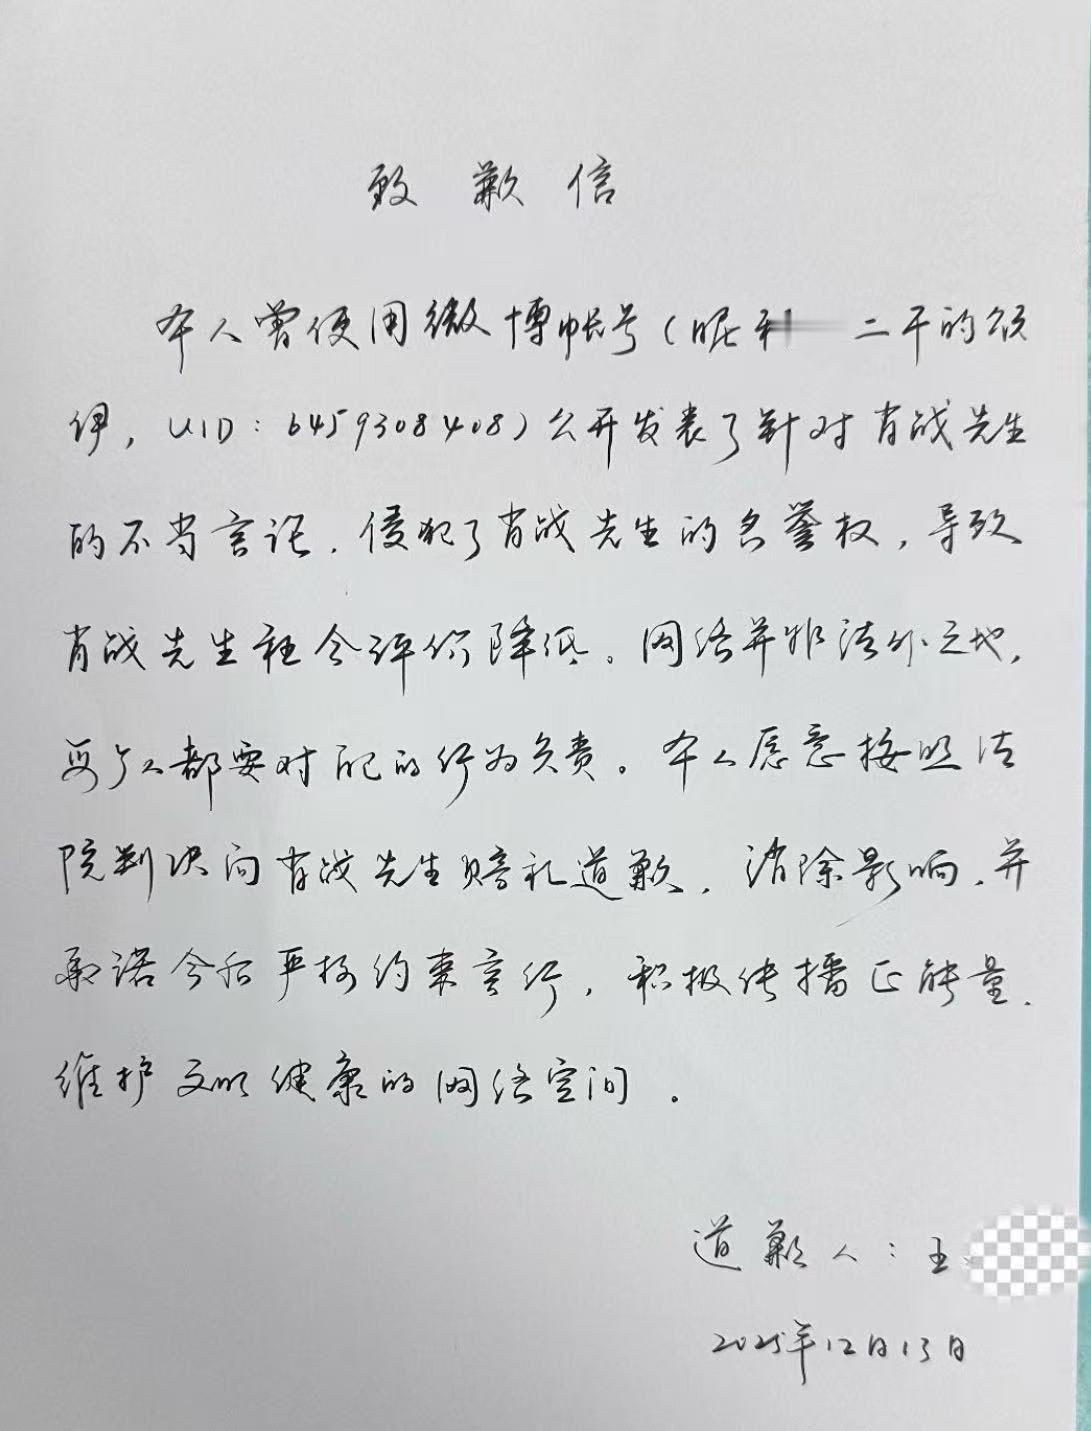 致歉信
本人曾使用微博帐号(昵 二千的颂
伊,UID:6459308408)公开发表了针对肖战先生
的不当言论,侵犯了肖战先生的名誉权,导致
肖战先生社会评价降低。网络并非法外之地,
每个人都要对自己的行为负责。本人愿意按照法
院判决向肖战先生赔礼道歉,消除影响,并
承诺今后严格约束言行,积极传播正能量,
维护文明健康的网络空间。
道歉人:王
2025年12月13日